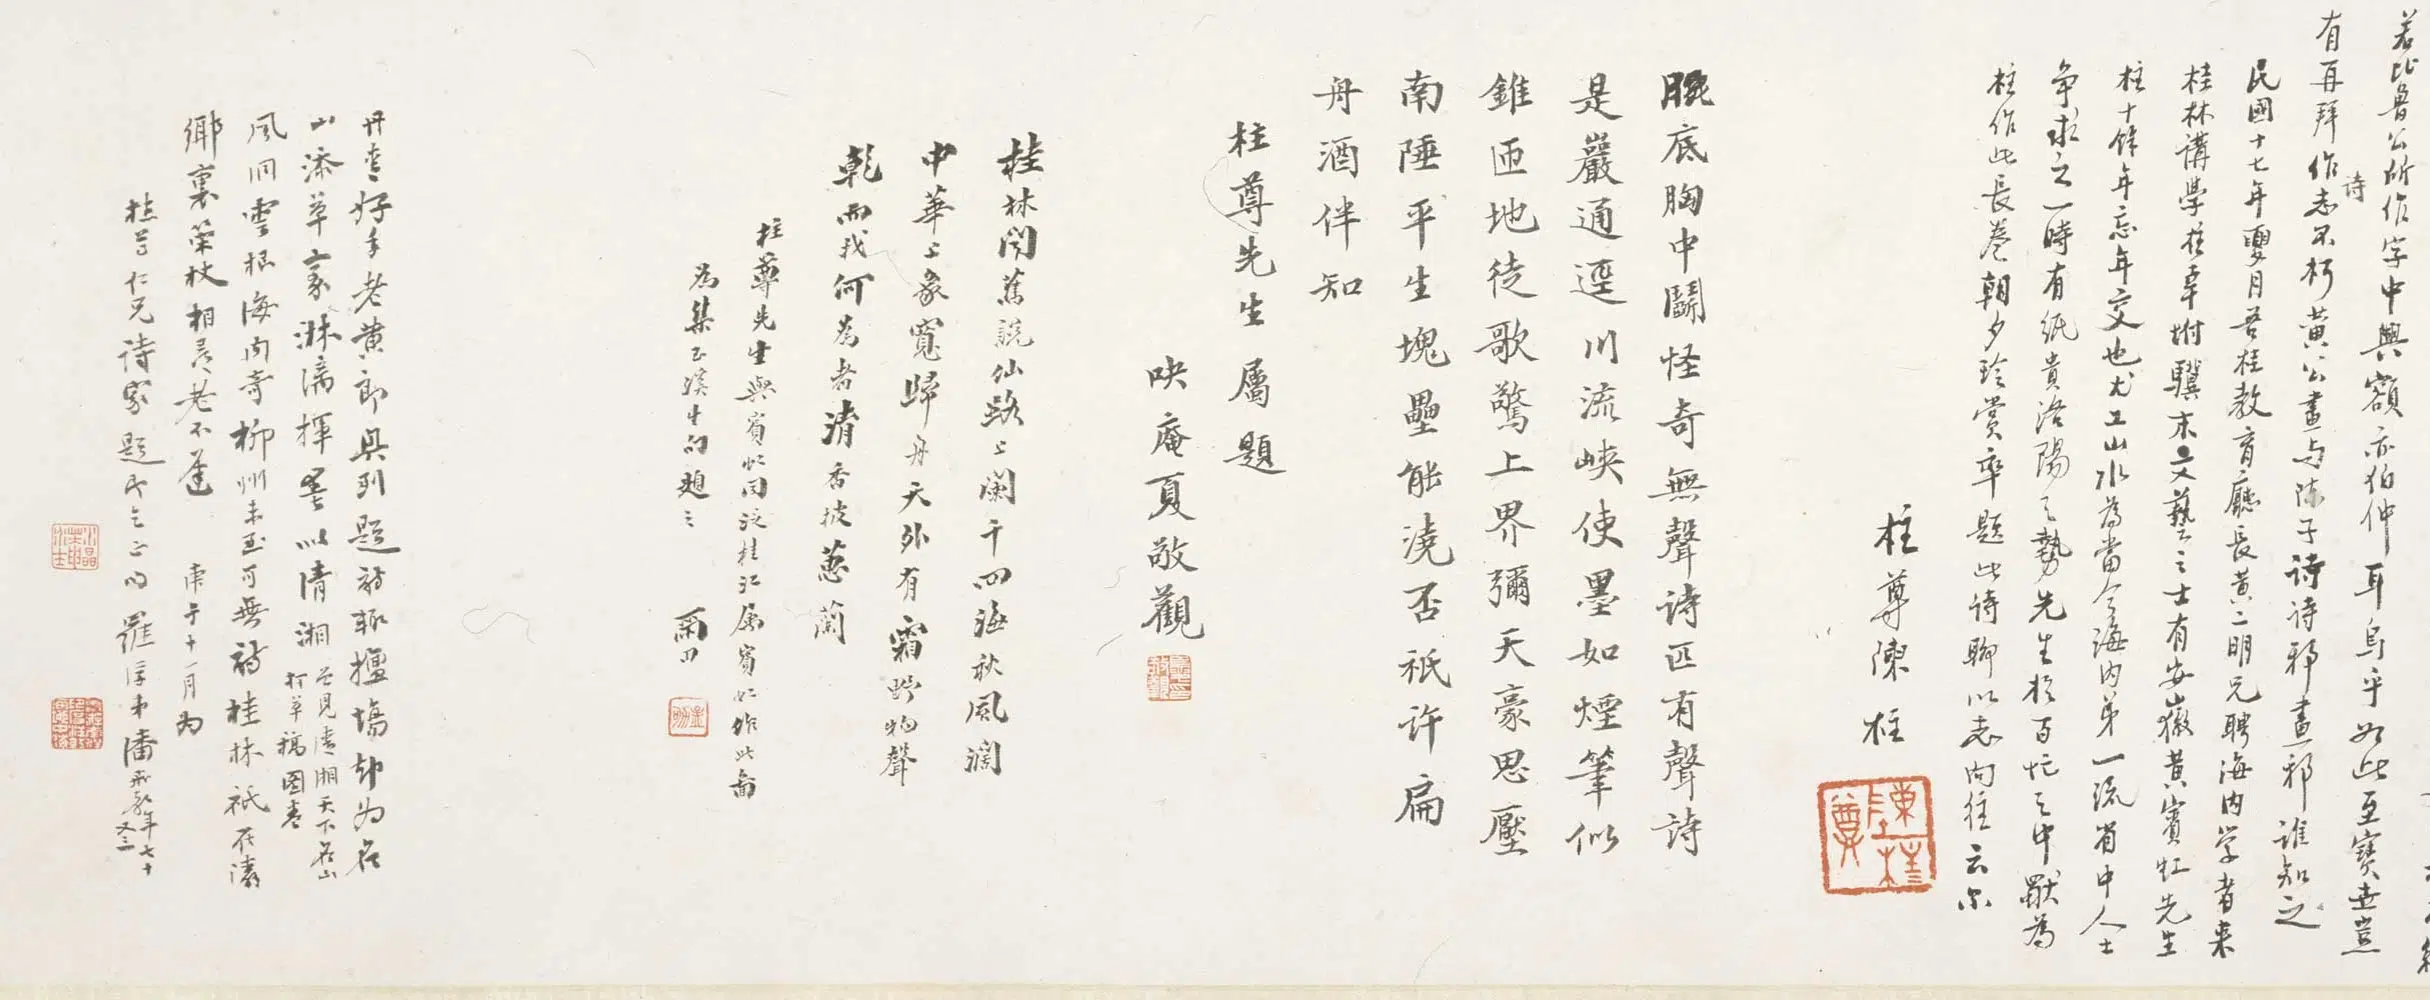 若比魯公所作字中興額亦伯仲耳烏乎如此至寶世豈
有再拜作詩志不朽黃公畫与陳子詩詩邪畫邪誰知之
民國十七年夏月吾桂教育廳長黃二明兄聘海內学者来
桂林講學柱幸坿驥末文藝之士有安徽黃賓虹先生
柱十餘年忘年交也尤工山水為當今海內第一流省中人士
争求之一時有紙貴洛陽之勢先生於百忙之中獸為
柱作此長卷朝夕珍賞卒題此詩聊以志向往云尔
柱尊陳柱
陳柱尊
眼底胸中鬭怪奇無聲詩匹有聲詩
是巖通逕川流峽使墨如煙筆似
錐匝地徒歌驚上界彌天豪思壓
南陲平生塊壘能澆否祇許扁
舟酒伴知
柱尊先生屬題
吷庵夏敬觀
桂林閒蕉說仙路上闌干四海秋風闊
中華上象寬歸舟天外有霜野物聲
乾而我何為者清香披蕙蘭
柱尊先生與賓虹同泛桂江屬賓虹作此畵
為集玉溪生句題之
丹青好手老黃郎與列題詩輒擅場却為名
山添草稾淋漓揮墨以清湘
昔見清湘天下名山
打草稿圖卷
風洞雲根海內奇柳州未至可無詩桂林祇在濤
鄉裏策杖相尋老不遲
庚午十一月為
柱尊仁兄詩家題即乞正句
年七十